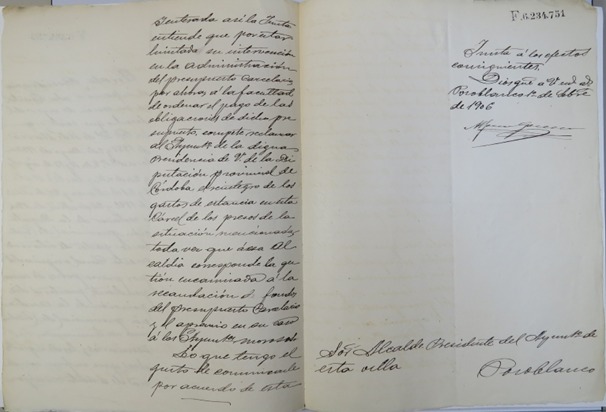 Y enterada así la Junta
entiende que por estar
limitada su intervención
en la administración
del presupuesto Carcelario
por ahora, á la facultad
de ordenar el pago de las
obligaciones de dicho pre
supuesto, compete reclamar
al Ayunto de la digna
Presidencia de V. de la Di
putación provincial de
Córdoba el reintegro de los
gastos de estancia en esta
Cárcel de los presos de la
situación mencionada,
toda vez que á esa Al
caldía corresponde la ges
tión encaminada á la
recaudación de fondos
del presupuesto Carcelario
y el apremio en su caso
á los Ayuntos morosos.
Lo que tengo el
gusto de comunicarle
por acuerdo de esta
F.6.234.751
Junta á los efectos
consiguientes.
Dios gue a V. md. as.
Pozoblanco 1º de
de 1906
Sor Alcalde Presidente del Ayunto de
esta villa
Pozoblanco